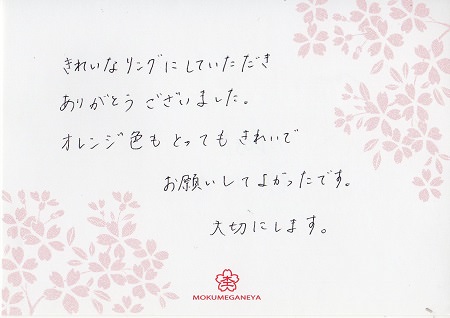 きれいなリングにしていただき
ありがとうございました。
オレンジ色もとってもきれいで
お願いしてよかったです。
大切にします。
MOKUMEGANEYA